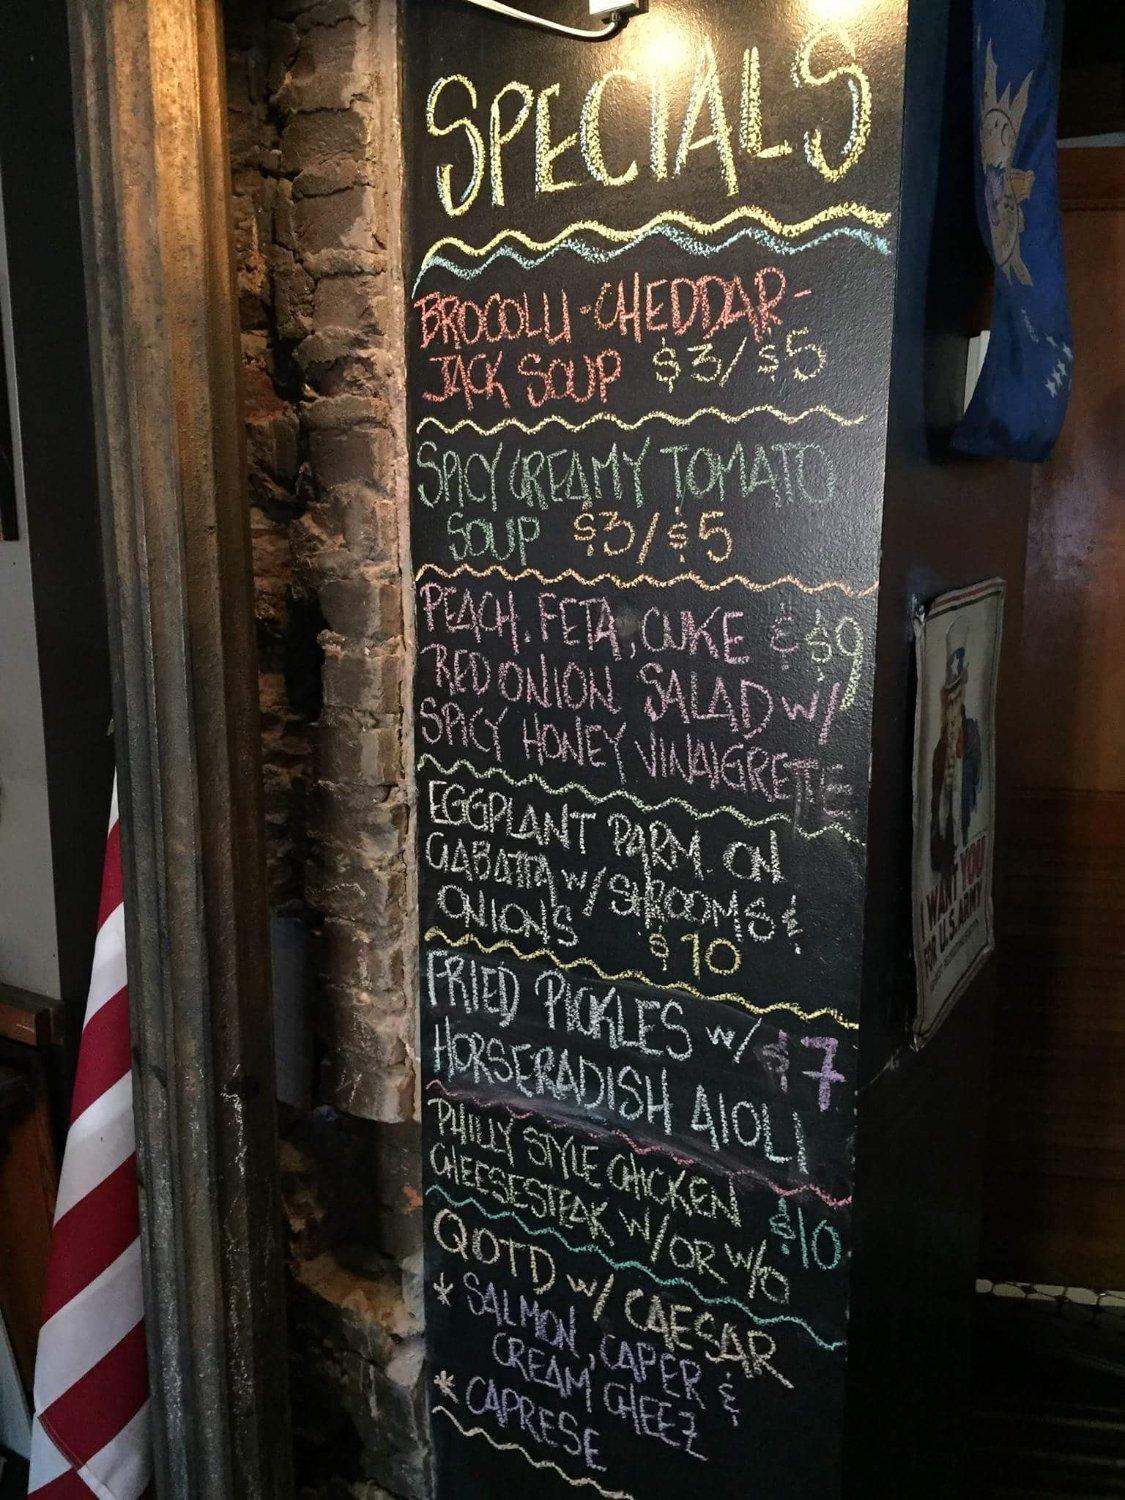 SPECIALS
BROCOLLI-CHEDDAR-
JACK SOUP $3/$5
SPICY CREAMY TOMATO
SOUP $3/$5
PEACH, FETA, CUKE & $9
RED ONION SALAD W/
SPICY HONEY VINAIGRETTE
EGGPLANT PARM. ON
CIABATTA W/ SHROOMS &
ONIONS $10
FRIED PICKLES W/ $7
HORSERADISH AIOLI
PHILLY STYLE CHICKEN
CHEESESTEAK W/ OR W/O $10
QOTD W/ CAESAR
* SALMON, CAPER &
CREAM CHEEZ
* CAPRESE
I WANT YOU
FOR U.S. ARMY